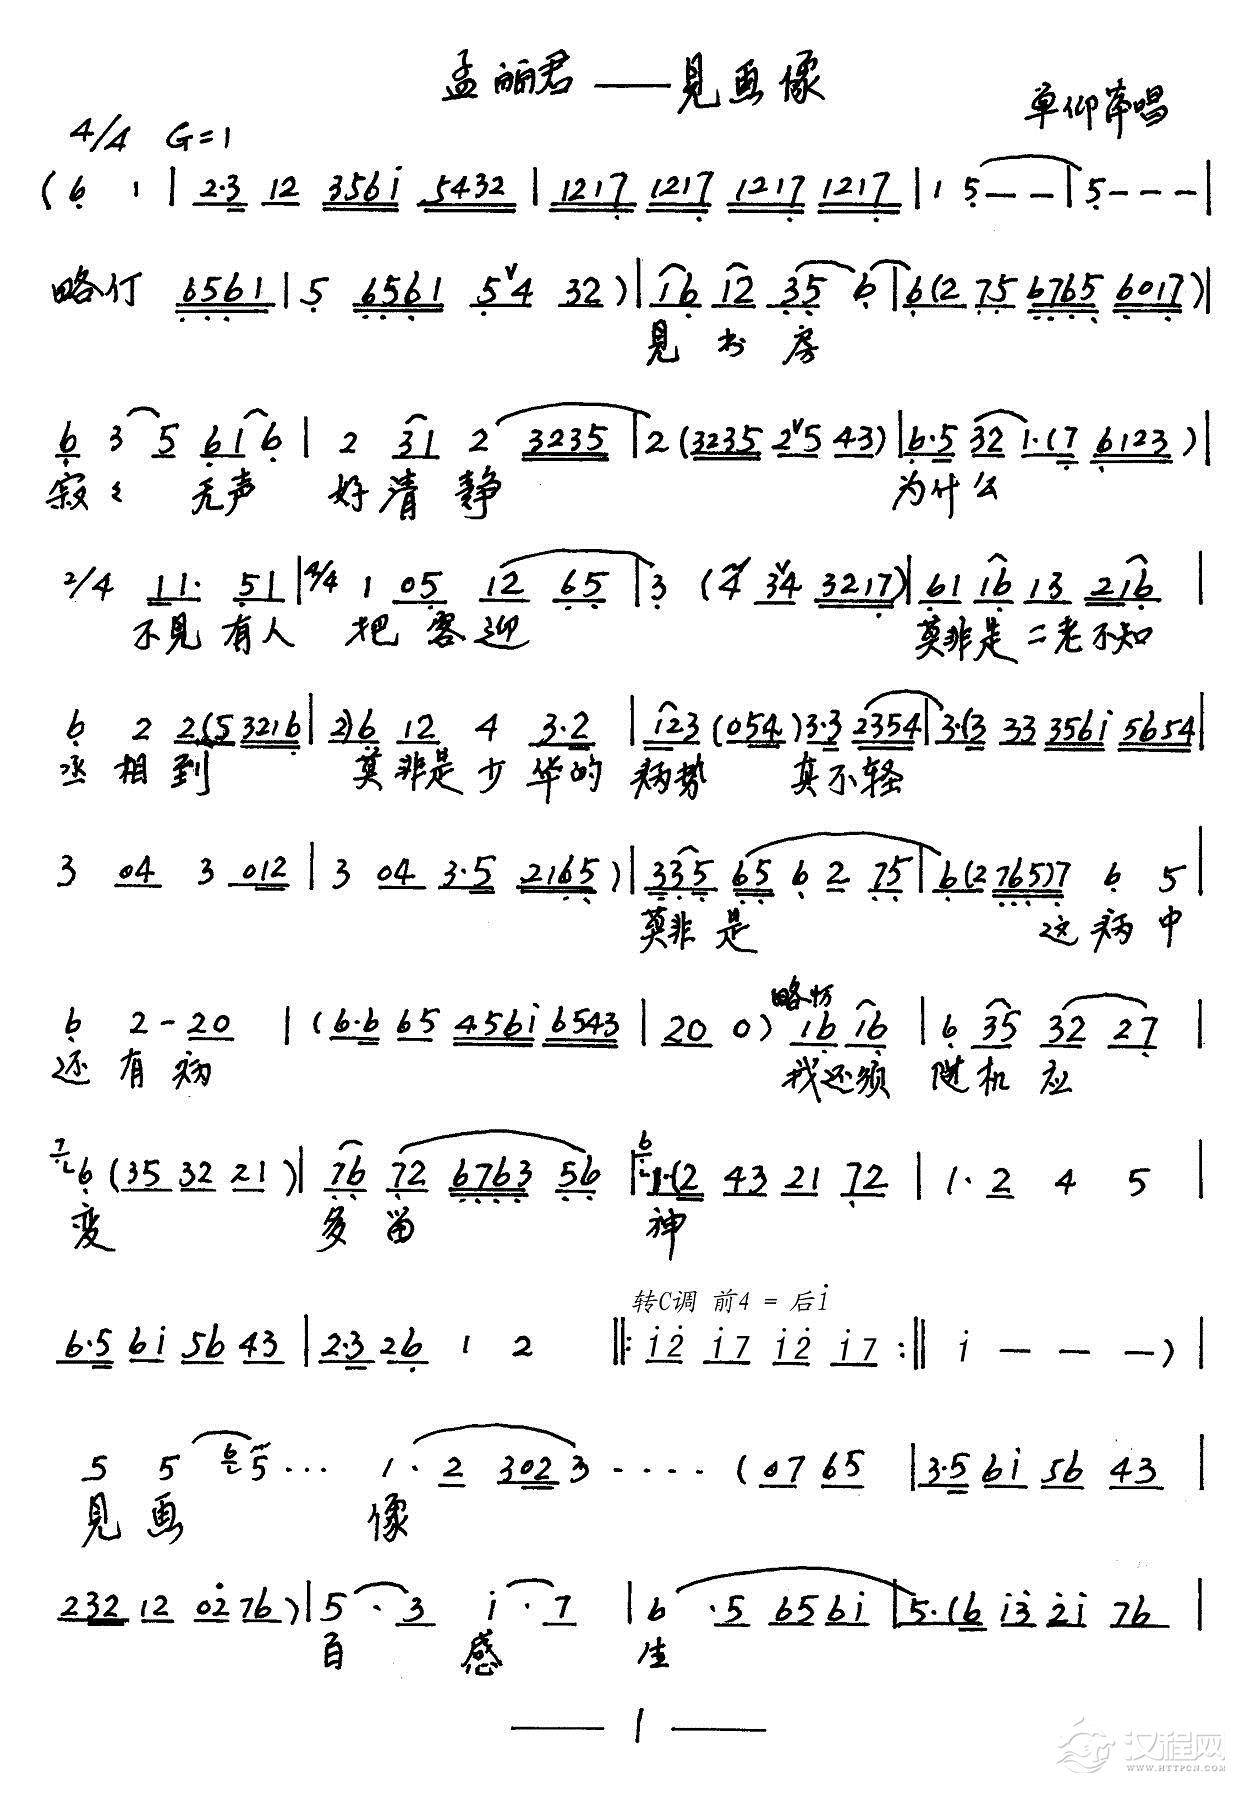 孟丽君——见画像
单仰萍唱
4/4 G=1
(6 1 | 2·3 12 356i 5432 | 1217 1217 1217 1217 | 1 5 — — | 5 — — — |
6561 | 5 6561 5ˇ4 32 ) | 16 12 35 6 | 6(2 75 6765 6017) |
见 书 房
6 3 5 616 | 2 31 2 3235 | 2 (3235 2ˇ5 43) | 6·5 32 1·(7 6123 ) |
寂〻 无声 好清静 为什么
2/4 11· 51 | 4/4 1 05 12 65 | 3 (4 3ˇ4 3217) | 61 16 13 216 |
不见有人 把客迎 莫非是二老不知
6 2 2(5 3216 | 2)6 12 4 3·2 | 123 (054) 3·3 2354 | 3·(3 33 356i 5654 |
丞相到 莫非是少华的 病势 真不轻
3 04 3 012 | 3 04 3·5 2165 ) | 335 65 6 2 75 | 6(2 765)7 6 5 |
莫非是 这病中
6 2 - 20 | (6·6 65 456i 6543 | 20 0 ) 16 16 | 6 35 32 27 |
还有病 我还须 随机应
7 6 (35 32 21 ) | 76 72 6763 56 | 6 1·(2 43 21 72 | 1· 2 4 5 |
变 多留 神
转C调 前4 = 后i
6·5 6i 56 43 | 2·3 26 1 2 ‖: i2 i7 i2 i7 :‖ i — — — ) |
5 5 6 5 ··· 1· 2 302 3 ···· (07 65 | 3·5 6i 56 43 |
见画 像
232 12 02 76 ) | 5 · 3 i · 7 | 6 ·5 656i | 5·(6 i3 2i 76 |
百 感 生
—— 1 ——
汉程网
WWW.HTTPCN.COM